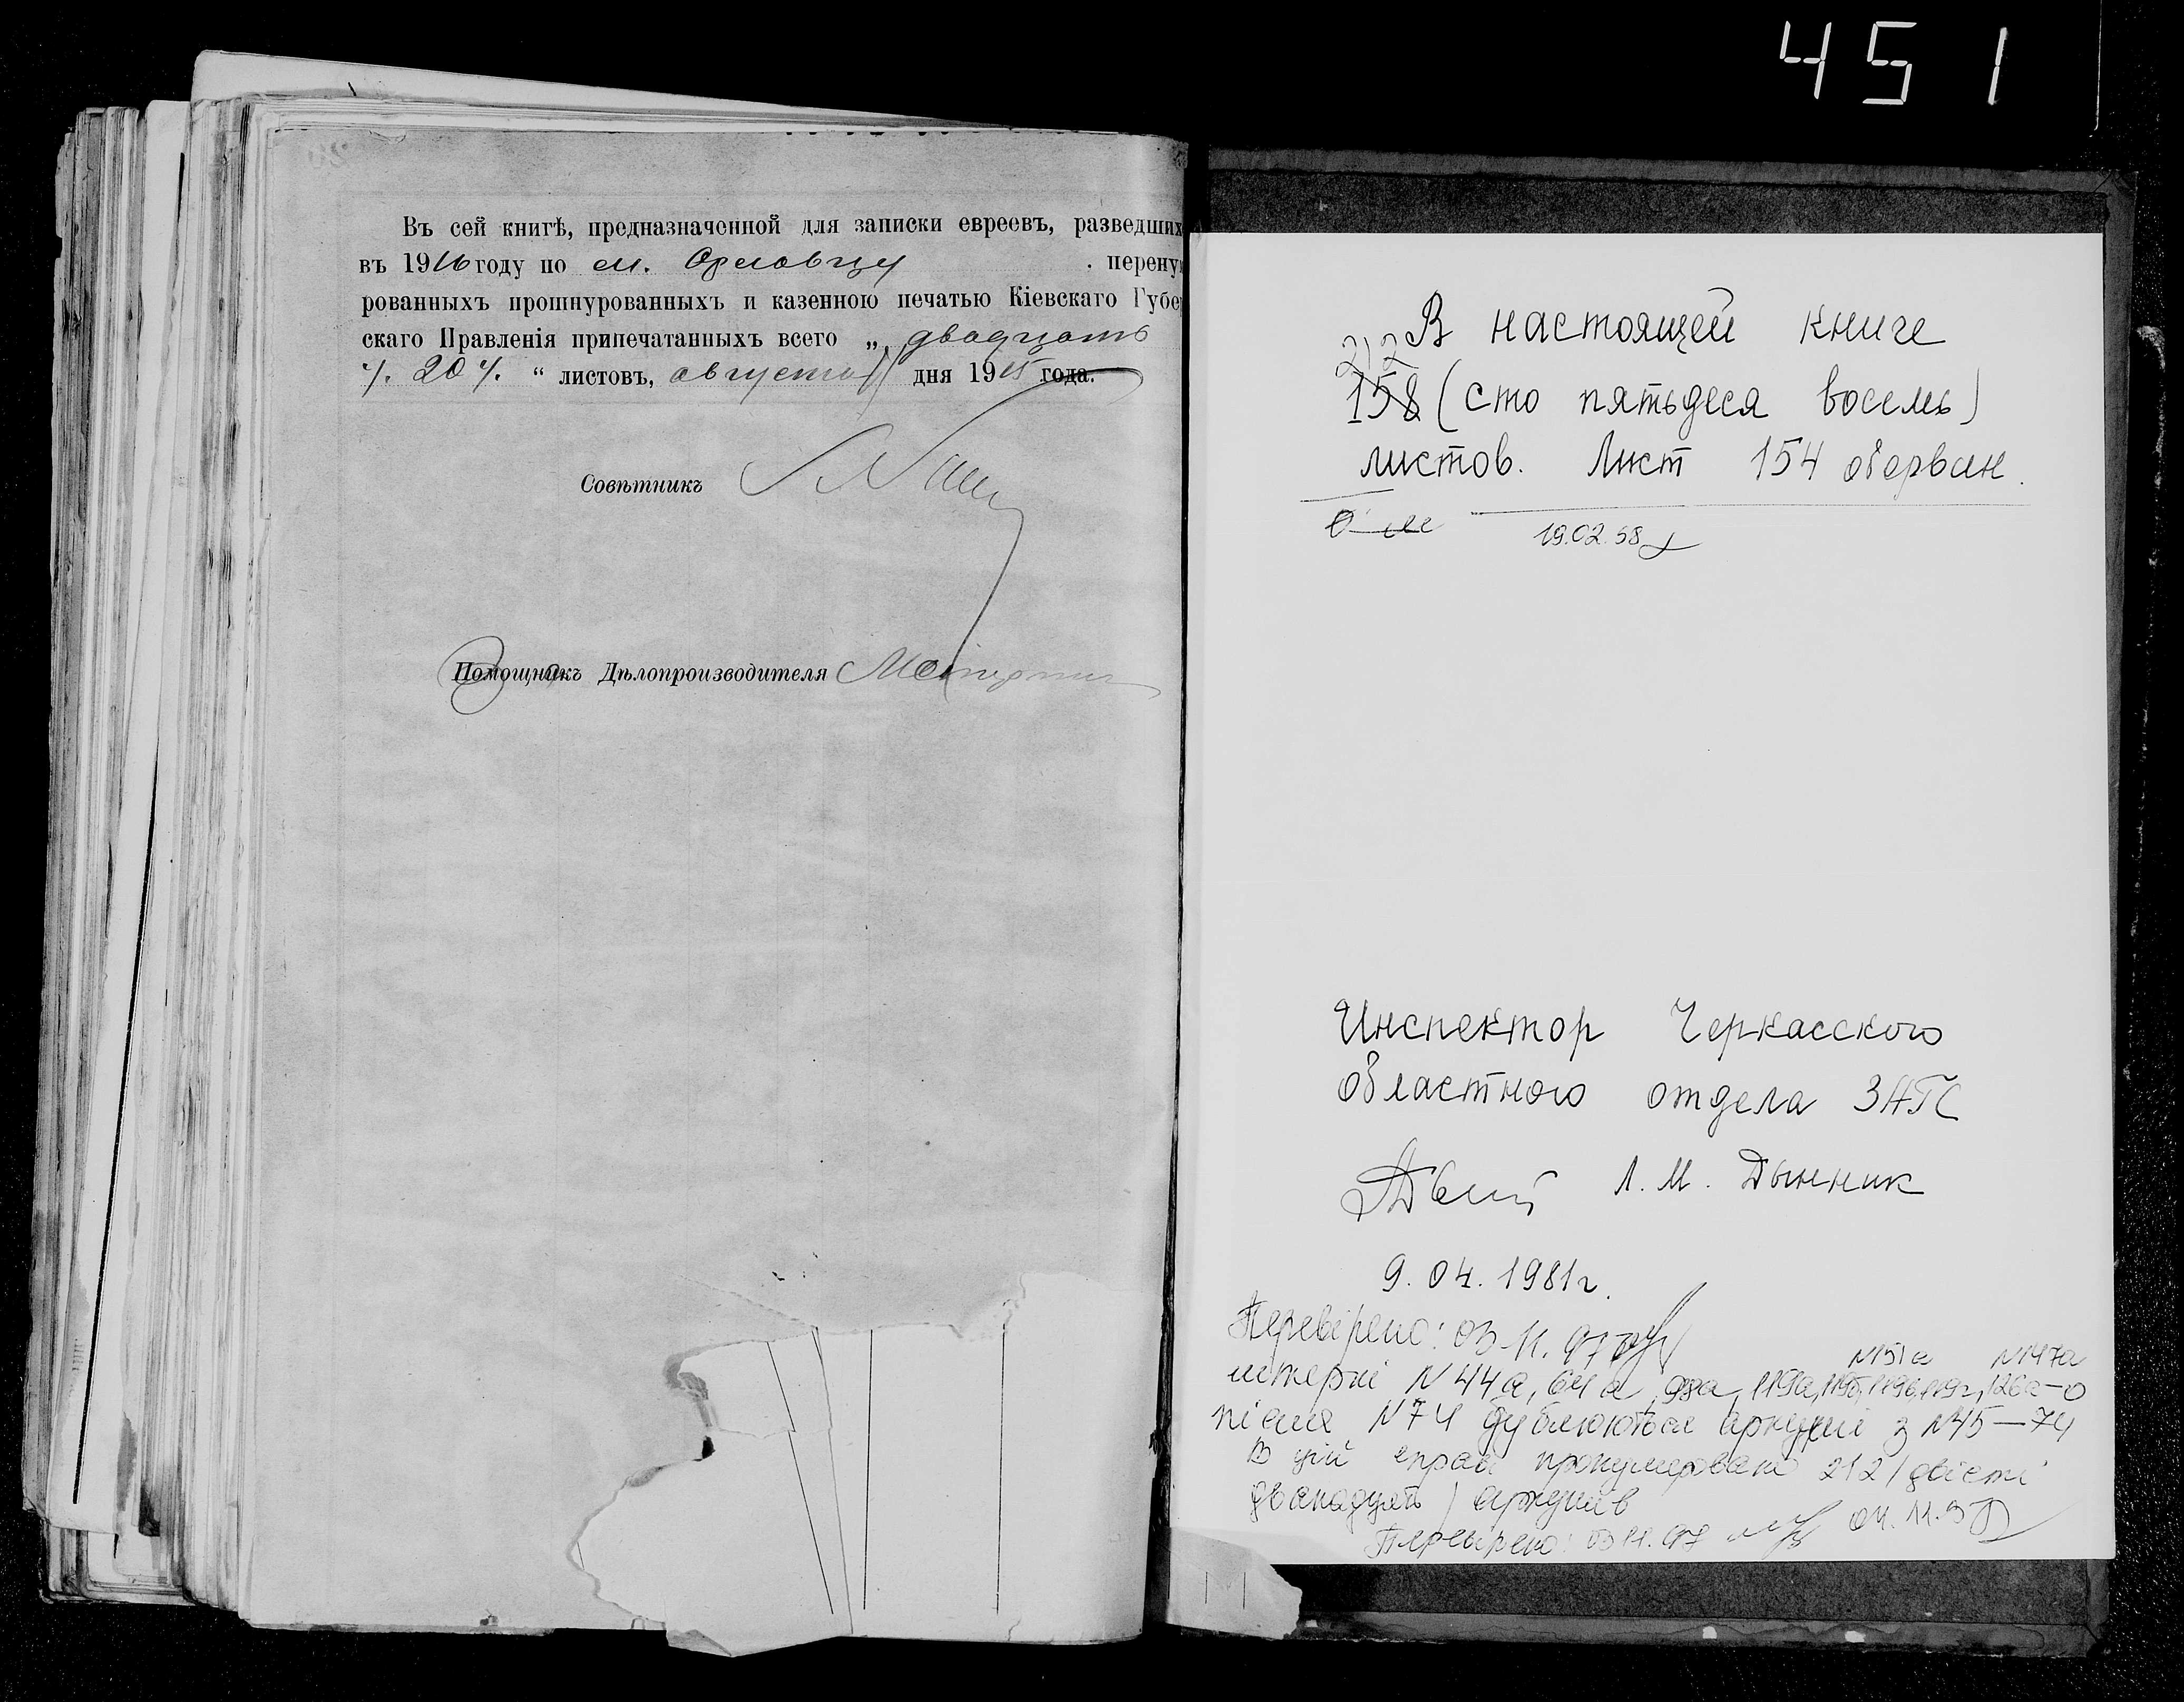 451
Въ сей книгѣ, предназначенной для записки евреевъ, разведших
въ 1916 году по м. Орловцу . перену
рованныхъ прошнурованныхъ и казенною печатью Кіевскаго Губе
скаго Правленія припечатанныхъ всего „ двадцать
20 “ листовъ, августа дня 1915 года.
Совѣтникъ
Помощникъ Дѣлопроизводителя
В настоящей книге
212
158 (сто пятьдеся восемь)
листов. Лист 154 оборван.
19.02.98
Инспектор Черкасского
областного отдела ЗАГС
Л. М. Дынник
9. 04. 1981г.
Перевірено: 03.11.97
N151а N147а
літерні N44а, 64а, 98а, 119а, 119б, 119в, 119г, 126а-
після N74 дублюються аркуші з N45—74
В цій справі пронумеровано 212 /двісті
дванадцять/ аркушів
Перевірено: 03.11.97 04.11.97